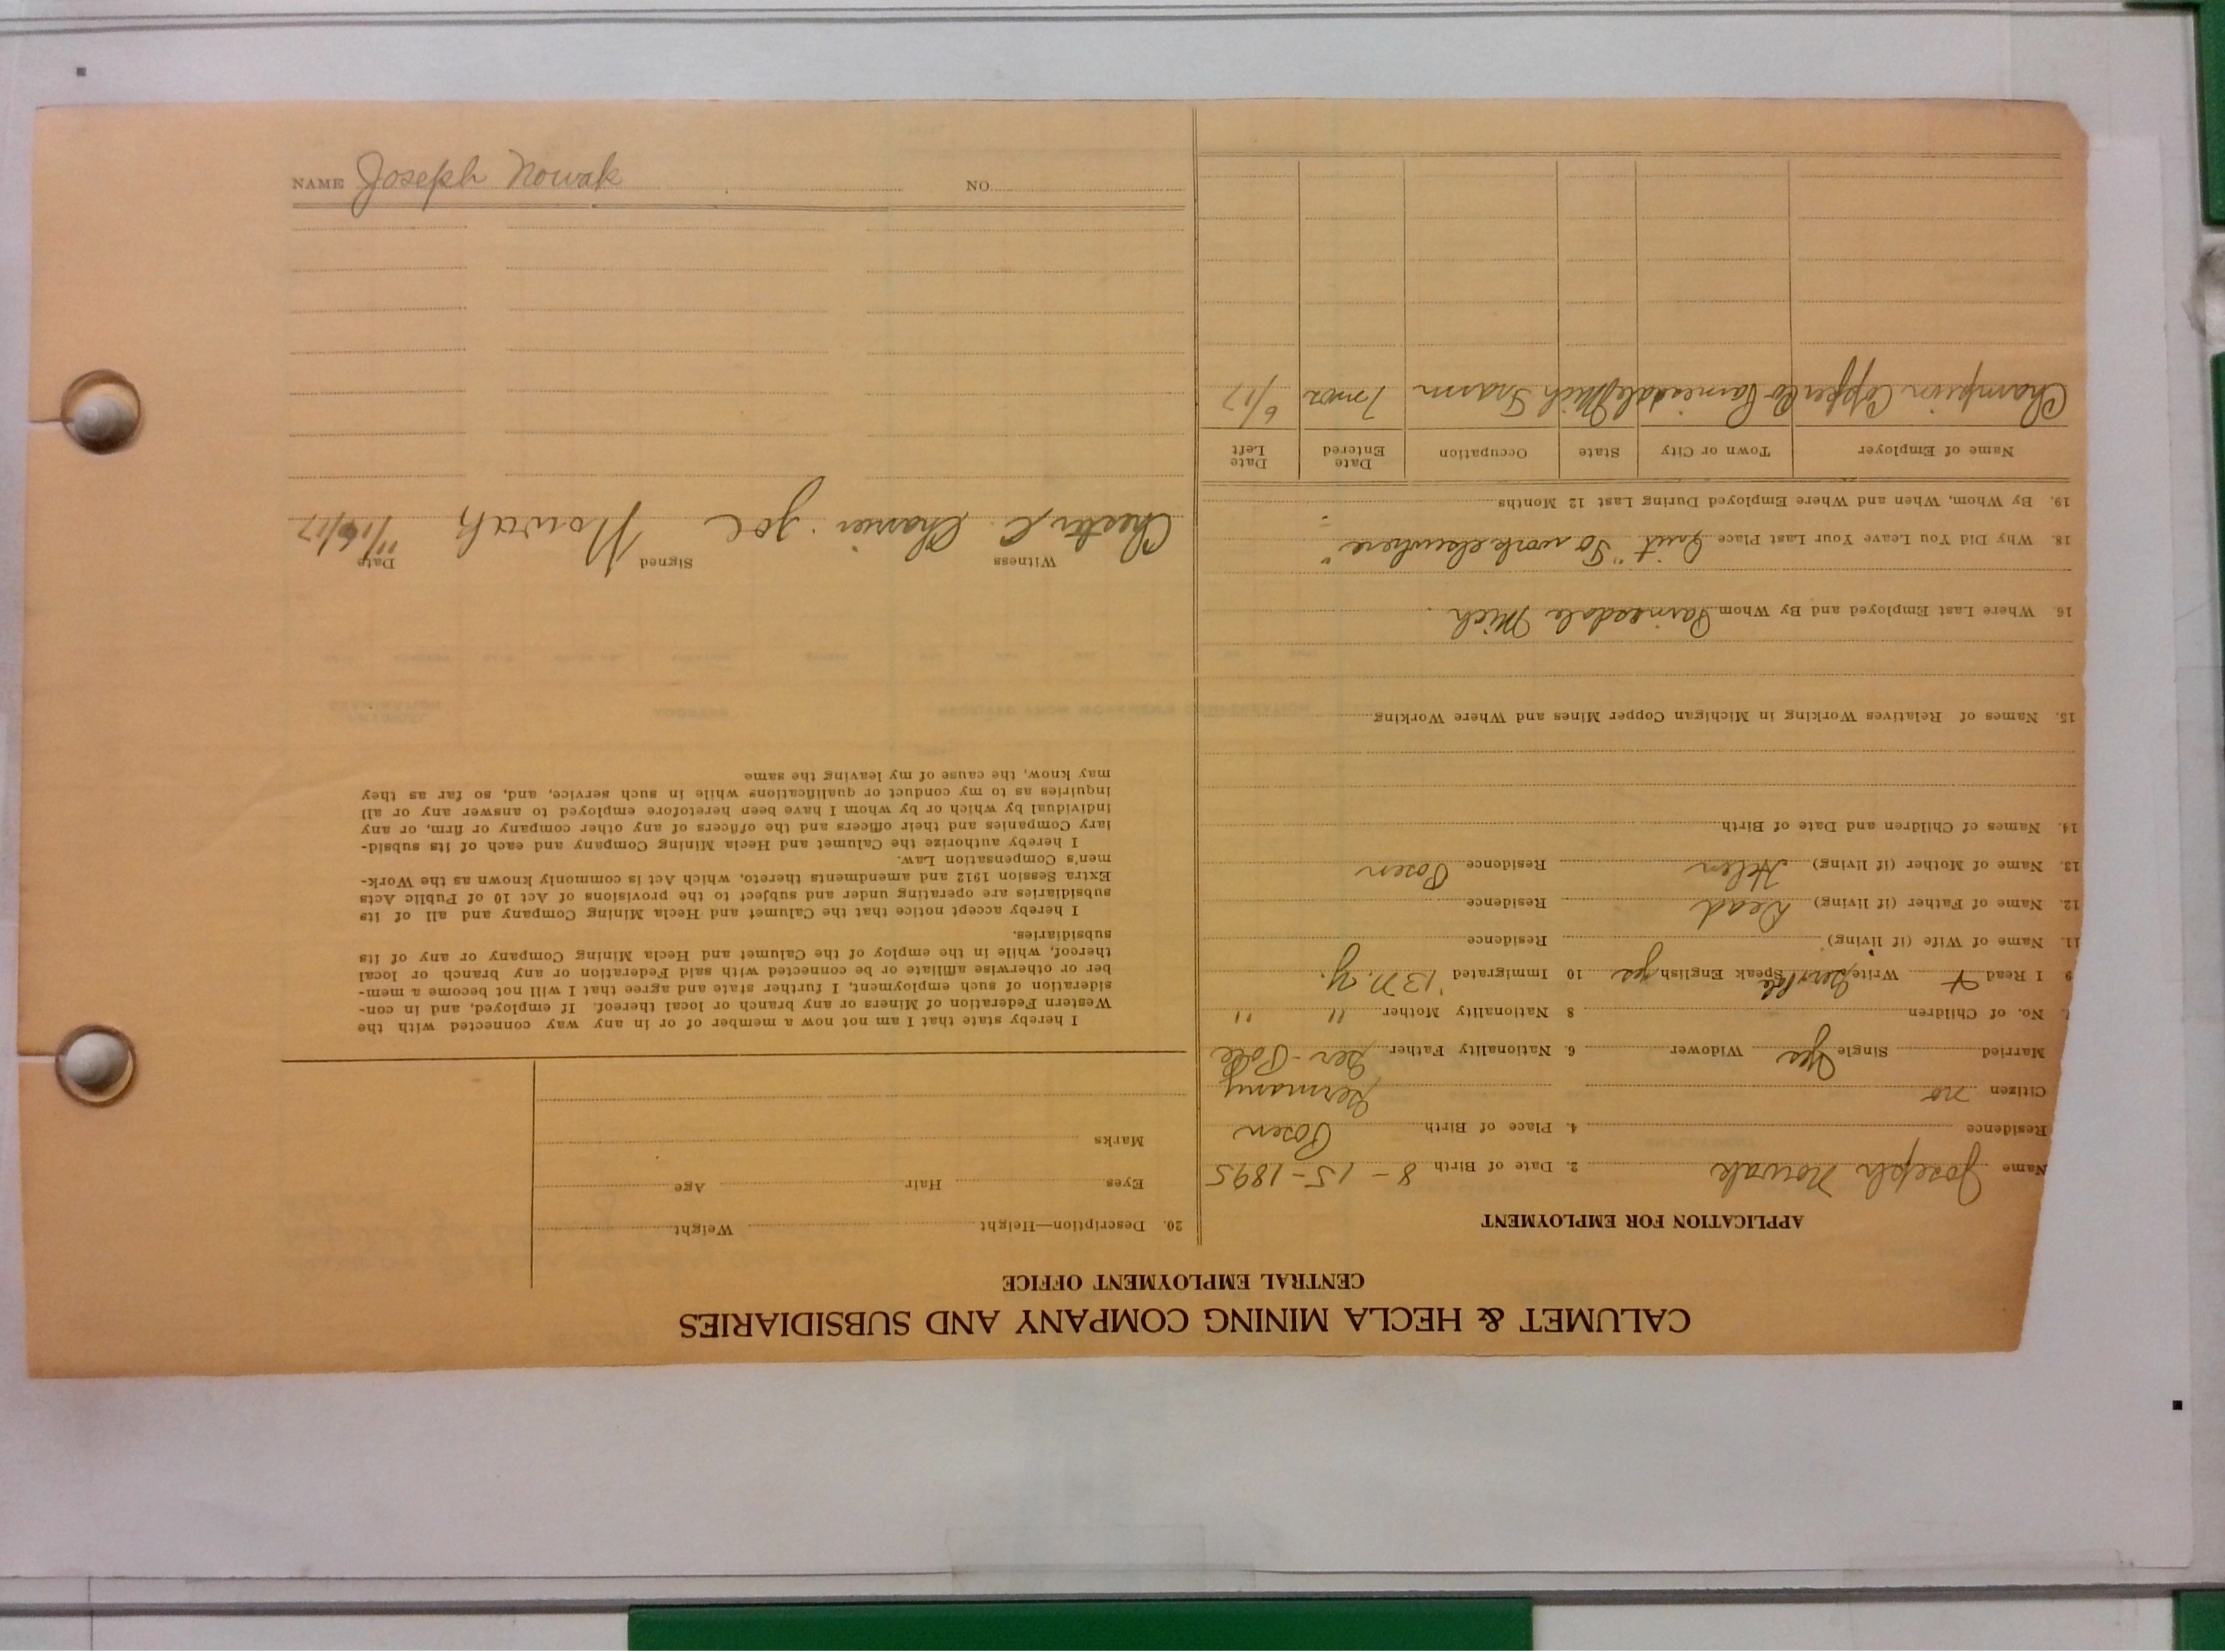 CALUMET & HECLA MINING COMPANY AND SUBSIDIARIES
CENTRAL EMPLOYMENT OFFICE
APPLICATION FOR EMPLOYMENT
Name Joseph Nowak 2. Date of Birth 8-15-1895
Residence 4. Place of Birth Posen
Citizen no Germany
Married Single Yes Widower 6. Nationality Father Ger-Pole
No. of Children 8 Nationality Mother " "
9 I Read X Write Ger Pole Speak English yes 10 Immigrated '13 N.Y.
11. Name of Wife (if living) Residence
12. Name of Father (if living) Dead Residence
13. Name of Mother (if living) Helen Residence Posen
14. Names of Children and Date of Birth
15. Names of Relatives Working in Michigan Copper Mines and Where Working
16. Where Last Employed and By Whom Painesdale Mich
18. Why Did You Leave Your Last Place Quit "To work elsewhere"
19. By Whom, When and Where Employed During Last 12 Months
Name of Employer Town or City State Occupation Date Entered Date Left
Champion Copper Co Painesdale Mich Tram 7 mos 6/17
20. Description—Height Weight
Eyes Hair Age
Marks
I hereby state that I am not now a member of or in any way connected with the
Western Federation of Miners or any branch or local thereof. If employed, and in con-
sideration of such employment, I further state and agree that I will not become a mem-
ber or otherwise affiliate or be connected with said Federation or any branch or local
thereof, while in the employ of the Calumet and Hecla Mining Company or any of its
subsidiaries.
I hereby accept notice that the Calumet and Hecla Mining Company and all of its
subsidiaries are operating under and subject to the provisions of Act 10 of Public Acts
Extra Session 1912 and amendments thereto, which Act is commonly known as the Work-
men's Compensation Law.
I hereby authorize the Calumet and Hecla Mining Company and each of its subsid-
iary Companies and their officers and the officers of any other company or firm, or any
individual by which or by whom I have been heretofore employed to answer any or all
inquiries as to my conduct or qualifications while in such service, and, so far as they
may know, the cause of my leaving the same
Witness Signed Date
Chester C. Joe Nowak 11/16/17
NAME Joseph Nowak NO.